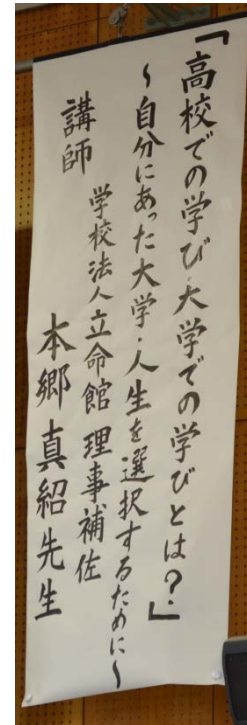 「高校での学び・大学での学びとは?」
～自分にあった大学・人生を選択するために～
講師 学校法人立命館 理事補佐
本郷 真紹 先生